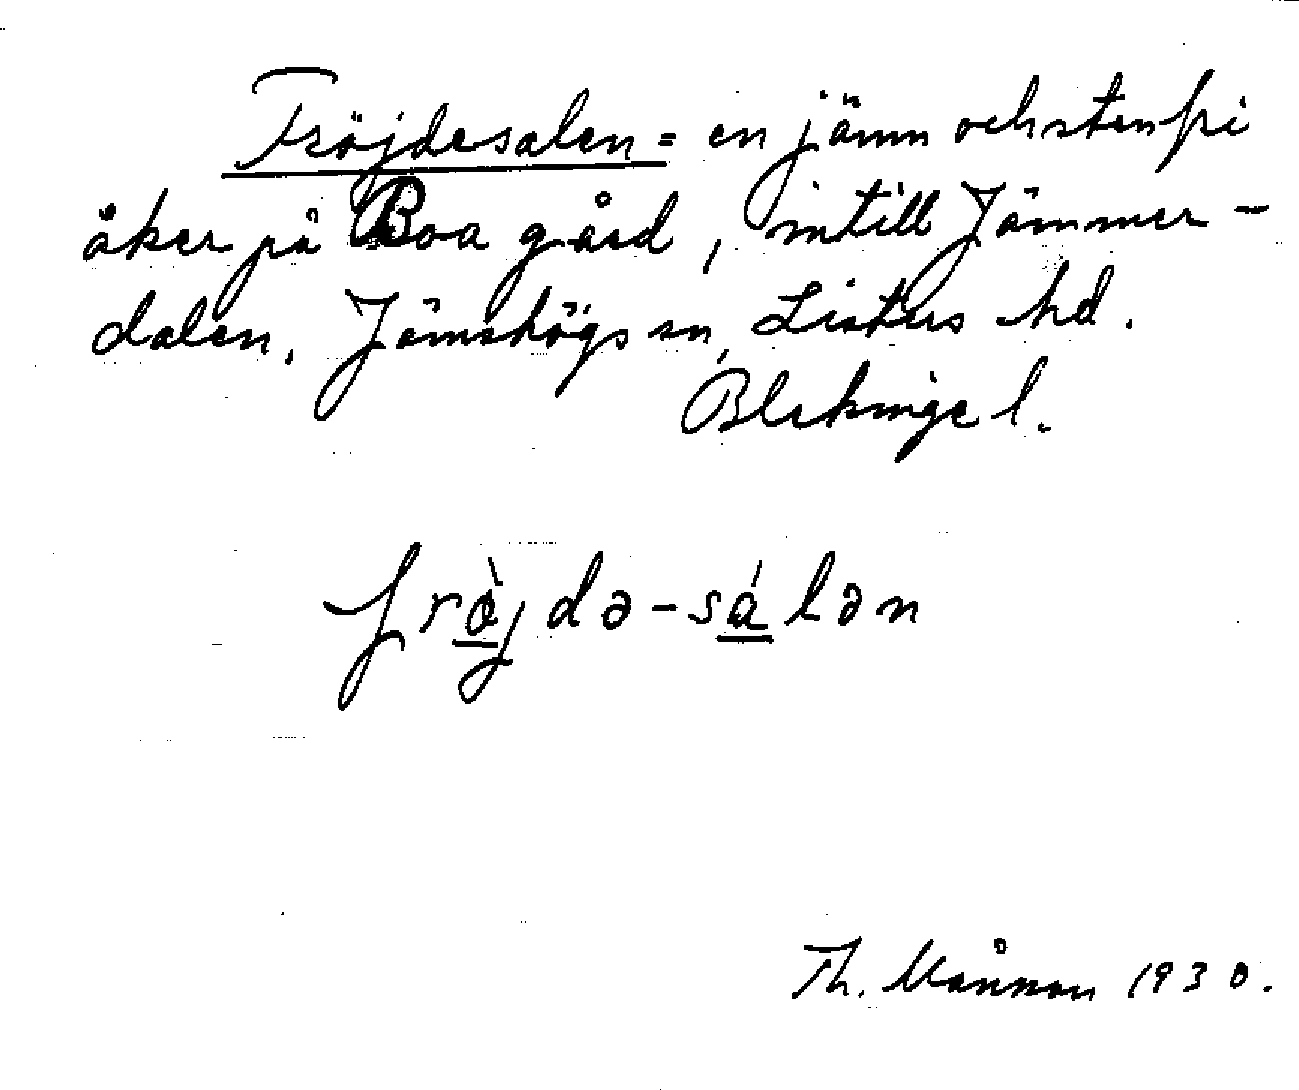 Fröjdesalen = en jämn och stenfri
åker på Boa gård, intill Jämmer-
dalen. Jämshögs sn, Listers hd.
Blekinge l.
frö̀jdə-sálən
Th. Månson 1930.